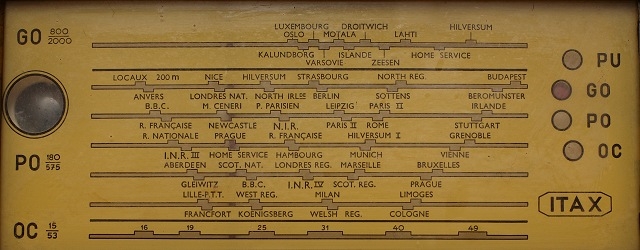 LUXEMBOURG DROITWICH HILVERSUM
OSLO MOTALA LAHTI
GO 800 2000
KALUNDBORG ISLANDE HOME SERVICE
VARSOVIE ZEESEN
LOCAUX 200 m NICE HILVERSUM STRASBOURG NORTH REG. BUDAPEST
ANVERS LONDRES NAT. NORTH IRLSE BERLIN SOTTENS BEROMUNSTER
B.B.C. M. CENERI P. PARISIEN LEIPZIG PARIS II IRLANDE
R. FRANÇAISE NEWCASTLE N.I.R. PARIS II ROME STUTTGART
R. NATIONALE PRAGUE R. FRANÇAISE HILVERSUM I GRENOBLE
I.N.R. III HOME SERVICE HAMBOURG MUNICH VIENNE
PO 180 575
ABERDEEN SCOT. NAT. LONDRES REG. MARSEILLE BRUXELLES
GLEIWITZ B.B.C. I.N.R. IV SCOT. REG. PRAGUE
LILLE-P.T.T. WEST REG. MILAN LIMOGES
FRANCFORT KOENIGSBERG WELSH REG. COLOGNE
OC 15 53
16 19 25 31 40 49
PU
GO
PO
OC
ITAX